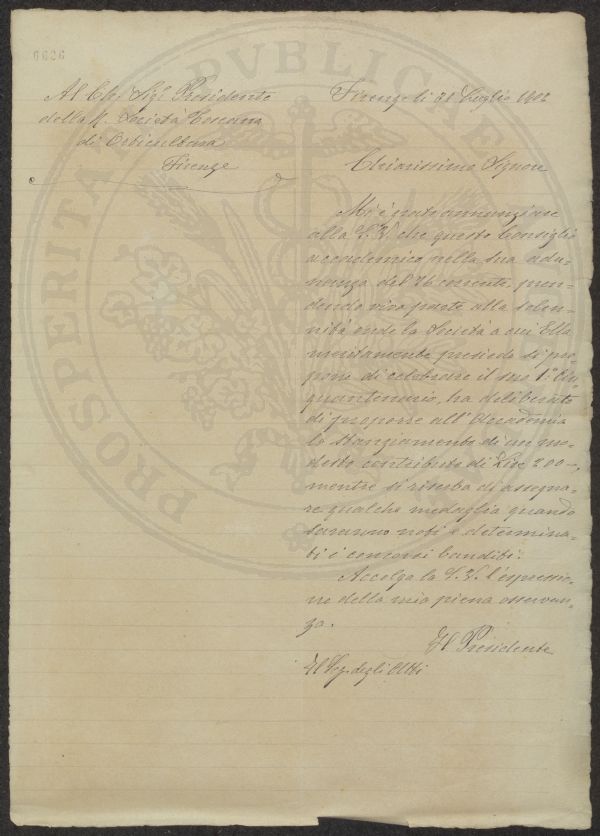 6626
Al Ch. Sigr Presidente
della R. Società Toscana
di Orticultura
Firenze
Firenze li 31 Luglio 1902
Chiarissimo Signore
Mi è grato annunziare
alla S.V. che questo Consiglio
accademico nella sua adu-
nanza del 26 corrente, pren-
dendo viva parte alla solen-
nità onde la Società a cui Ella
meritamente presiede si pro-
pone di celebrare il suo 1° Cin-
quantenario, ha deliberato
di proporre all'Accademia
lo stanziamento di un mo-
desto contributo di Lire 200-,
mentre si riserba di assegna-
re qualche medaglia quando
saranno noti e determina-
ti i concorsi banditi.
Accolga la S.V. l'espressio-
ne della mia piena osservan-
za.
Il Presidente
Il Seg. degli Atti
PROSPERITATI PVBLICAE